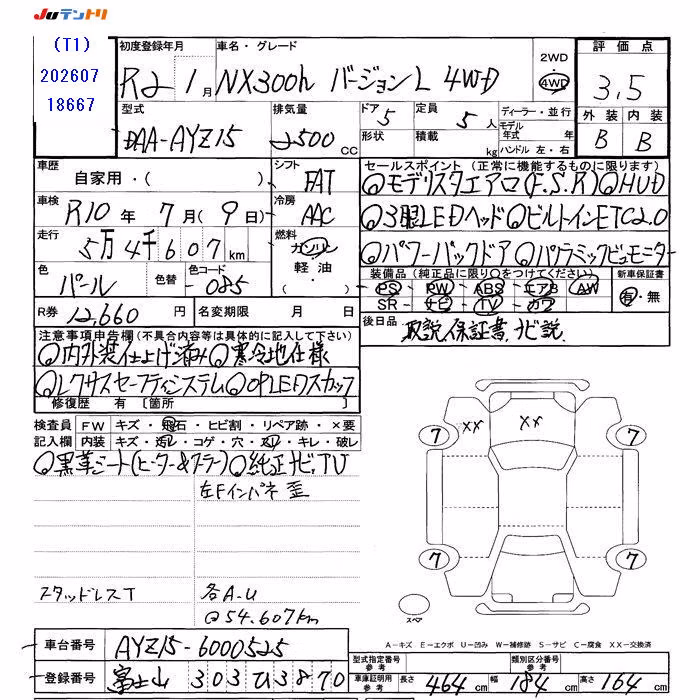 JUテントリ
(T1)
202607
18667
初度登録年月
R2 1月
車名・グレード
NX300h バージョンL 4WD
2WD
4WD
評価点
3.5
外装 内装
B B
型式
DAA-AYZ15
排気量
2500 cc
ドア 5
形状
定員 5 人
積載 kg
ディーラー・並行
モデル年式 年
ハンドル 左・右
車歴
自家用・( )
シフト
FAT
車検
R10年 7月(9日)
冷房
AAC
走行
5万4千607km
燃料
ガソリン
軽油・
( )
色
パール
色替
色コード
085
R券 12,660円
名変期限 月 日
セールスポイント(正常に機能するものに限ります)
◎モデリスタエアロ(F.S.R)◎HUD
◎3眼LEDヘッド◎ビルトインETC2.0
◎パワーバックドア◎パノラミックビューモニター
装備品(純正品に限り○をつけてください)
PS・PW・ABS・エアB・AW
SR・ナビ・TV・カワ
新車保証書
有・無
後日品
取説 保証書 ナビ説
注意事項申告欄(不具合内容等は具体的に記入して下さい)
◎内外装仕上げ済み◎寒冷地仕様
◎レクサスセーフティシステム◎OPLEDフォグランプ
修復歴 有 〔箇所 〕
検査員記入欄
FW キズ・飛石・ヒビ割・リペア跡・×要
内装 キズ・汚レ・コゲ・穴・スレ・キレ・破レ
◎黒革シート(ヒーター&クーラー)◎純正ナビ、TV
左Fインパネ歪
スタッドレスT
各A-U
◎54.607km
XX XX
7 7
7 7
スペア
A-キズ E-エクボ U-凹み W-補修跡 S-サビ C-腐食 XX-交換済
車台番号 AYZ15-6000525
登録番号 富士山 303 ひ 3870
型式指定番号 参考
類別区分番号 参考
車庫証明用 参考
長さ 464 cm 幅 184 cm 高さ 164 cm